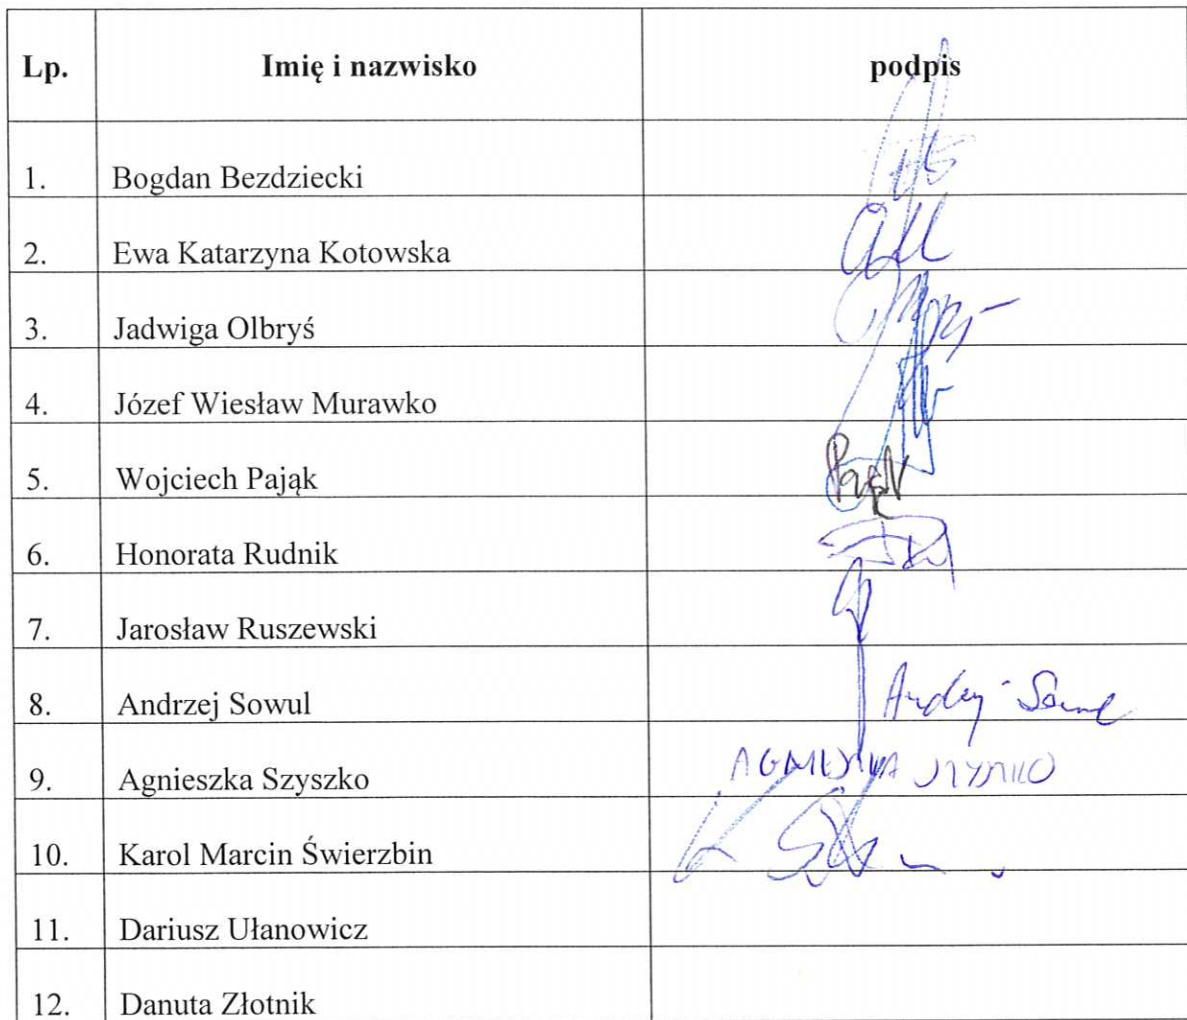 Lp. Imię i nazwisko podpis
1. Bogdan Bezdziecki
2. Ewa Katarzyna Kotowska
3. Jadwiga Olbryś
4. Józef Wiesław Murawko
5. Wojciech Pająk Pająk
6. Honorata Rudnik
7. Jarosław Ruszewski
8. Andrzej Sowul Andrzej Sowul
9. Agnieszka Szyszko AGNIESZKA SZYSZKO
10. Karol Marcin Świerzbin
11. Dariusz Ułanowicz
12. Danuta Złotnik